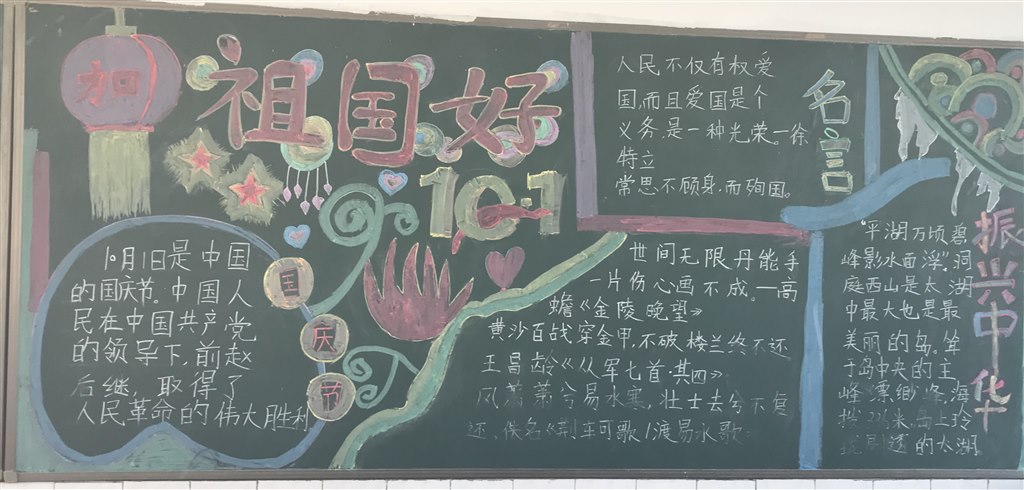 祖国好
10·1
10月1日是中国
的国庆节。中国人
民在中国共产党
的领导下,前赵
后继,取得了
人民革命的伟大胜利
国
庆
节
人民不仅有权爱
国,而且爱国是个
义务,是一种光荣。—徐
特立
常思不顾身,而殉国。
名言
世间无限丹能手
一片伤心画不成。—高
蟾《金陵晚望》
黄沙百战穿金甲,不破楼兰终不还
王昌龄《从军七首·其四》
风萧萧兮易水寒,壮士去兮不复
还,佚名《荆车可歌/渡易水歌
"平湖万顷碧
峰影水面浮".洞
庭西山是太湖
中最大也是最
美丽的岛。耸
于岛中央的
峰缥缈峰,海
米,岛上玲
的太湖
振兴中华